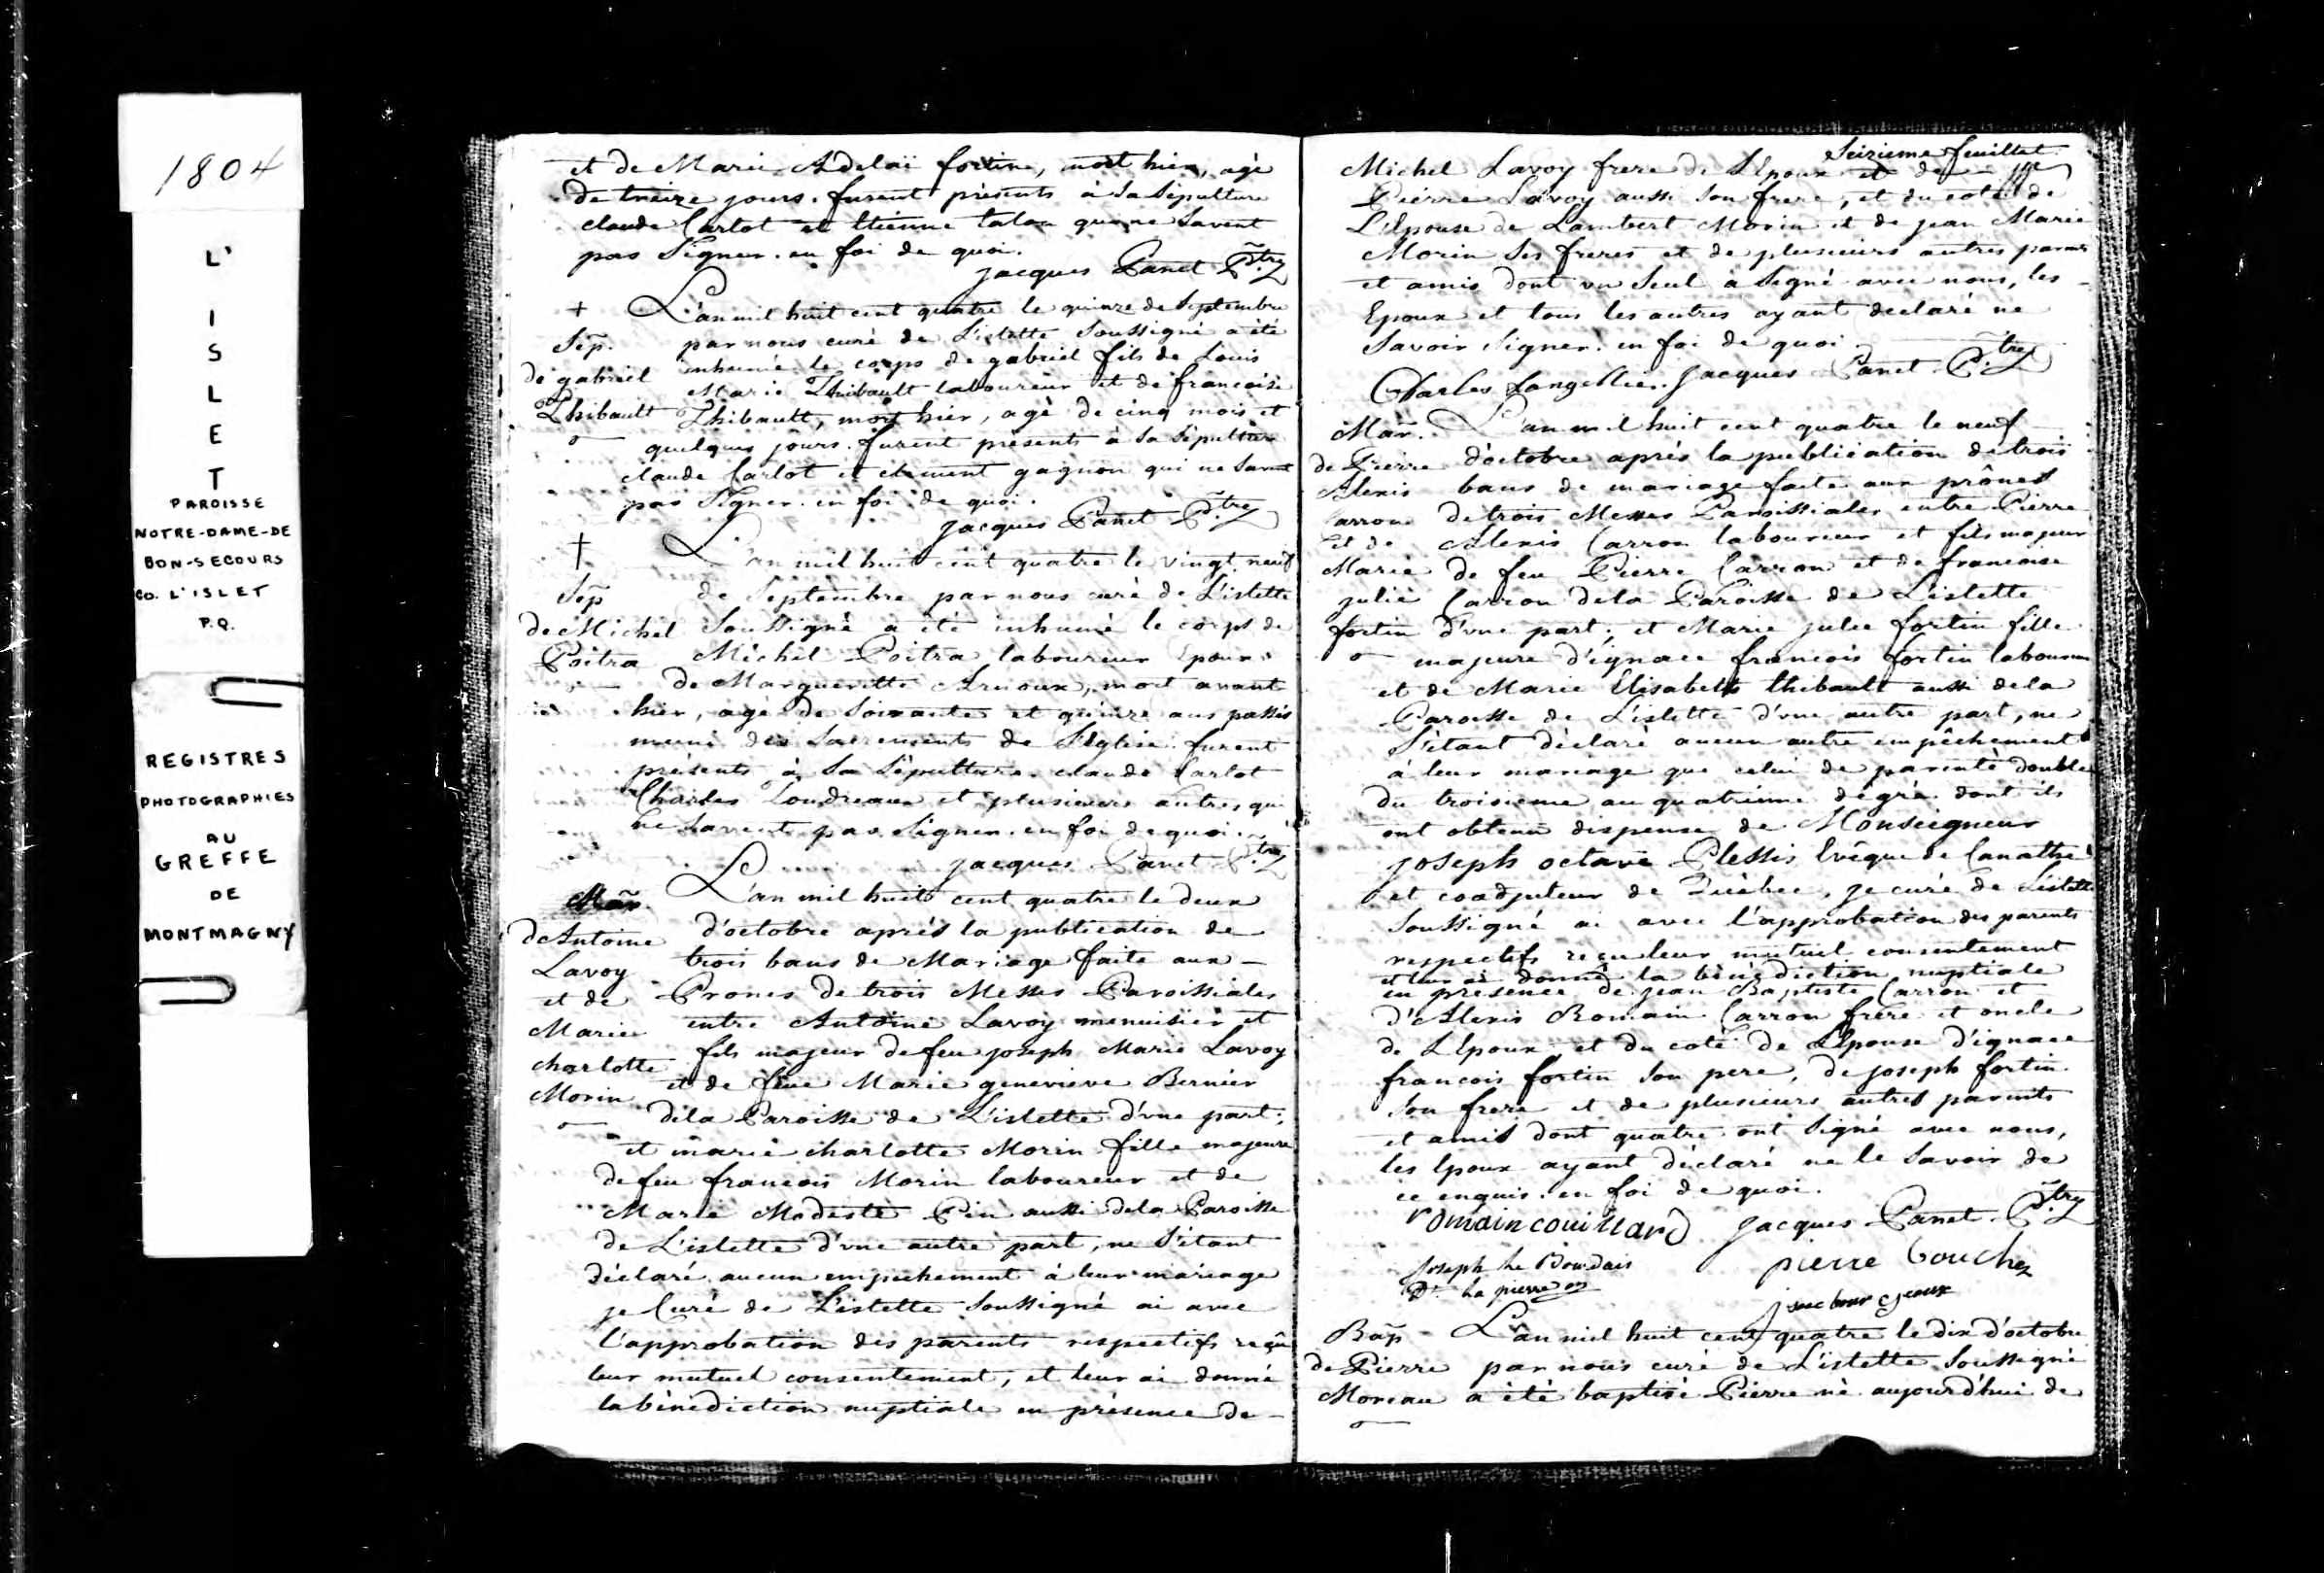 1804
L'
I
S
L
E
T
PAROISSE
NOTRE-DAME-DE
BON-SECOURS
CO. L'ISLET
P.Q.
REGISTRES
PHOTOGRAPHIES
AU
GREFFE
DE
MONTMAGNY
et de Marie Adelai fortine, mort hier, agè
de treize jours. furent présents à sa sépulture
claude Carlot et Etienne talon qui ne Savent
pas Signer. en foi de quoi.
jacques Panet Ptre
+ L'an mil huit cent quatre le quinze de Septembre
Sep. par nous curé de L'islette Soussigné a été
de gabriel inhumé le corps de gabriel fils de Louis
Marie Thibault laboureur et de francoise
Thibault Thibault, mort hier, agè de cinq mois et
quelques jours. furent présents à sa sépulture
claude Carlot et clement gagnon qui ne Savent
pas Signer. en foi de quoi.
jacques Panet Ptre
† L'an mil huit cent quatre le vingt neuf
Sep de Septembre par nous curé de L'islette
de Michel Soussigné a été inhumé le corps de
Poitra Michel Poitra laboureur Epoux
de Margueritte Arnoux, mort avant
hier, agè de Soixante et quinze ans passés
muni des Sacrements de l'église. furent
présents à Sa Sépulture claude Carlot
Charles Toudreaux et plusieurs autres qui
ne Savent pas Signer. en foi de quoi.
jacques Panet Ptre
Mar. L'an mil huit cent quatre le deux
d'Antoine d'octobre aprés la publication de
Lavoy trois bans de Mariage faite aux
et de Prones de trois Messes Paroissiales
Marie entre Antoine Lavoy menuisier et
charlotte fils majeur de feu joseph Marie Lavoy
Morin et de feue Marie genevieve Bernier
dela Paroisse de L'islette d'une part;
et marie charlotte Morin fille majeure
de feu francois Morin laboureur et de
Marie Modeste Pin aussi dela Paroisse
de L'islette d'une autre part, ne S'étant
déclaré aucun empechement à leur mariage
je Curé de L'islette Soussigné ai avec
l'approbation des parents respectifs reçu
leur mutuel consentement, et leur ai donné
la bénédiction nuptiale en présence de
Seizieme feuillet
Michel Lavoy frere de L'Epoux et de
Pierre Lavoy aussi Son frere, et du coté de
L'Epouse de Lambert Morin et de jean Marie
Morin Ses freres et de plusieurs autres parents
et amis dont un Seul a Signé avec nous, les
Epoux et tous les autres ayant declaré ne
Savoir Signer. en foi de quoi.
Charles Langellier. jacques Panet Ptre
Mar. L'an mil huit cent quatre le neuf
de Pierre d'octobre aprés la publication de trois
Alexis bans de mariage faite aux prônes
Carron de trois Messes Paroissiales entre Pierre
et de Alexis Carron laboureur et fils majeur
Marie de feu Pierre Carron et de francoise
julie Carron dela Paroisse de L'islette
fortin d'une part; et Marie julie fortin fille
majeure d'ignace francois fortin laboureur
et de Marie Elisabeth thibault aussi dela
Paroisse de L'islette d'une autre part, ne
S'étant déclaré aucun autre empêchement
à leur mariage que celui de parenté double
du troisieme au quatrieme dégré dont ils
ont obtenu dispense de Monseigneur
joseph octave Plessis Evêque de Canathe
et coadjuteur de Québec, je curé de L'islette
Soussigné ai avec l'approbation des parents
respectifs reçu leur mutuel consentement
et leur ai donné la bénédiction nuptiale
en presence de jean Baptiste Carron et
d'Alexis Romain Carron frere et oncle
de L'Epoux, et du coté de L'Epouse d'ignace
francois fortin Son pere, de joseph fortin
Son frere et de plusieurs autres parents
et amis dont quatre ont Signé avec nous,
les Epoux ayant déclaré ne le Savoir de
ce enquis. en foi de quoi.
romain couillard jacques Panet Ptre
Joseph Le Bourdais pierre bouche
Dt La pierre
Bap L'an mil huit cent quatre le dix d'octobre
de Pierre par nous curé de L'islette Soussigné
Moreau a été baptisé Pierre né aujourd'hui de